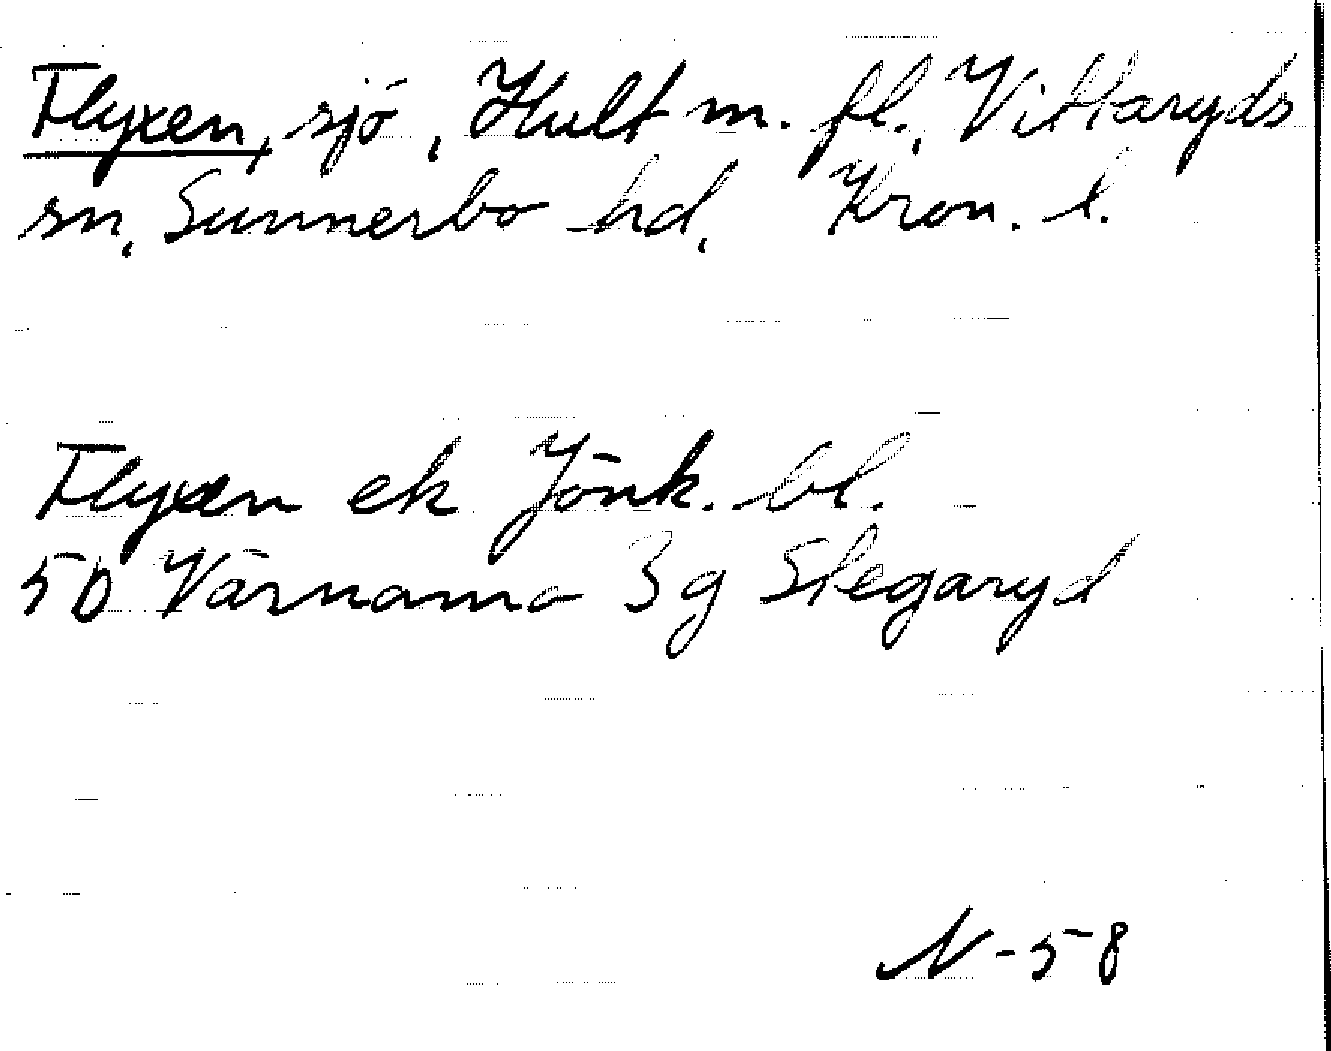 Flyxen, sjö, Hult m. fl., Vittaryds
sn, Sunnerbo hd, Kron. l.
Flyxen ek Jönk. bl.
50 Värnamo 3g Slegaryd
N-58